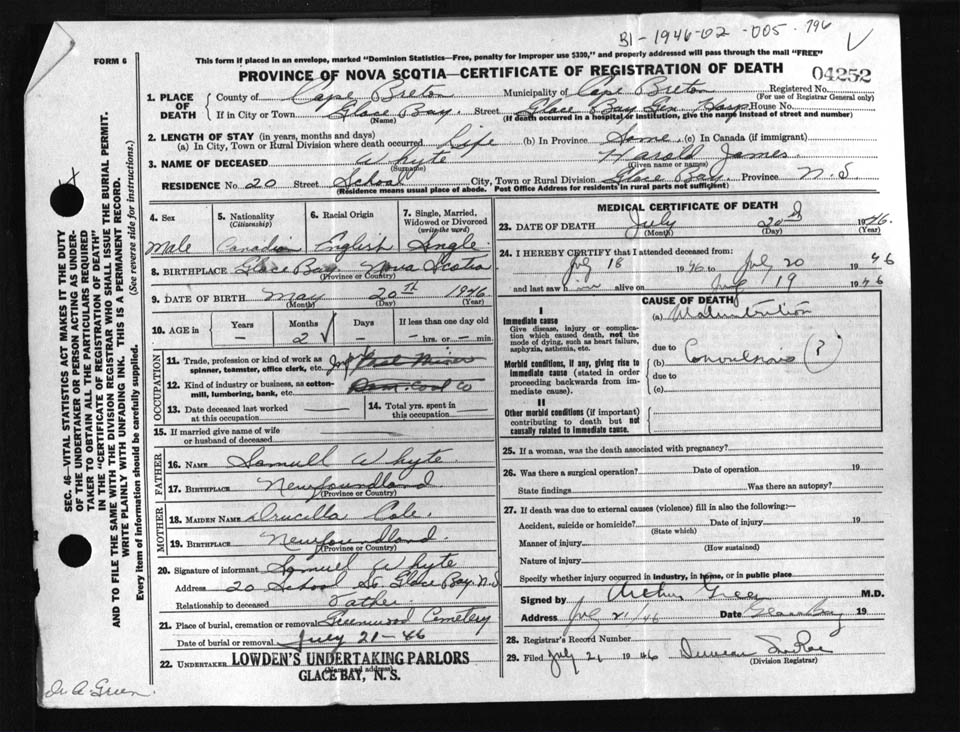 B1-1946-02-005-796
FORM 6
This form if placed in an envelope, marked "Dominion Statistics—Free, penalty for improper use $300," and properly addressed will pass through the mail "FREE"
PROVINCE OF NOVA SCOTIA—CERTIFICATE OF REGISTRATION OF DEATH
04252
1. PLACE OF DEATH
County of Cape Breton Municipality of Cape Breton Registered No.
(For use of Registrar General only)
If in City or Town Glace Bay Street Glace Bay Gen Hosp House No.
(Name) (If death occurred in a hospital or institution, give the name instead of street and number)
2. LENGTH OF STAY (in years, months and days)
(a) In City, Town or Rural Division where death occurred Life (b) In Province Same (c) In Canada (if immigrant)
3. NAME OF DECEASED Whyte Harold James
(Surname) (Given name or names)
RESIDENCE No 20 Street School City, Town or Rural Division Glace Bay Province N.S.
(Residence means usual place of abode. Post Office Address for residents in rural parts not sufficient)
4. Sex
Male
5. Nationality
(Citizenship)
Canadian
6. Racial Origin
English
7. Single, Married, Widowed or Divorced
(write the word)
Single
8. BIRTHPLACE Glace Bay Nova Scotia
(Province or Country)
9. DATE OF BIRTH May 20th 1946
(Month) (Day) (Year)
10. AGE in
Years Months Days If less than one day old
— 2 — — hrs. or — min.
OCCUPATION
11. Trade, profession or kind of work as spinner, teamster, office clerk, etc.
12. Kind of industry or business, as cotton-mill, lumbering, bank, etc. Dom. Coal Co
13. Date deceased last worked at this occupation
14. Total yrs. spent in this occupation
15. If married give name of wife or husband of deceased
FATHER
16. NAME Samuel Whyte
17. BIRTHPLACE Newfoundland
(Province or Country)
MOTHER
18. MAIDEN NAME Drucilla Cole
19. BIRTHPLACE Newfoundland
(Province or Country)
20. Signature of informant Samuel Whyte
Address 20 School St. Glace Bay. N.S
Relationship to deceased Father
21. Place of burial, cremation or removal Greenwood Cemetery
Date of burial or removal July 21-46
22. UNDERTAKER LOWDEN'S UNDERTAKING PARLORS
(Name and address)
GLACE BAY, N.S.
Dr A Green
MEDICAL CERTIFICATE OF DEATH
23. DATE OF DEATH July 20 1946
(Month) (Day) (Year)
24. I HEREBY CERTIFY that I attended deceased from:
July 18 1946 to July 20 1946
and last saw him alive on 19 1946
CAUSE OF DEATH
I
Immediate cause
Give disease, injury or complication which caused death, not the mode of dying, such as heart failure, asphyxia, asthenia, etc.
(a) Malnutrition
due to
Morbid conditions, if any, giving rise to immediate cause (stated in order proceeding backwards from immediate cause).
(b) Convulsions (?)
due to
(c)
II
Other morbid conditions (if important) contributing to death but not causally related to immediate cause.
25. If a woman, was the death associated with pregnancy?
26. Was there a surgical operation? Date of operation 19
State findings Was there an autopsy?
27. If death was due to external causes (violence) fill in also the following:—
Accident, suicide or homicide? Date of injury 19
(State which)
Manner of injury
(How sustained)
Nature of injury
Specify whether injury occurred in industry, in home, or in public place
Signed by Arthur Green M.D.
Address July 21/46 Date Glace Bay 19
28. Registrar's Record Number
29. Filed July 21 1946 Duncan
(Division Registrar)
SEC. 46—VITAL STATISTICS ACT MAKES IT THE DUTY
OF THE UNDERTAKER OR PERSON ACTING AS UNDER-
TAKER TO OBTAIN ALL THE PARTICULARS REQUIRED
IN THE "CERTIFICATE OF REGISTRATION OF DEATH"
AND TO FILE THE SAME WITH THE DIVISION REGISTRAR WHO SHALL ISSUE THE BURIAL PERMIT.
WRITE PLAINLY WITH UNFADING INK. THIS IS A PERMANENT RECORD.
Every item of information should be carefully supplied. (See reverse side for instructions.)